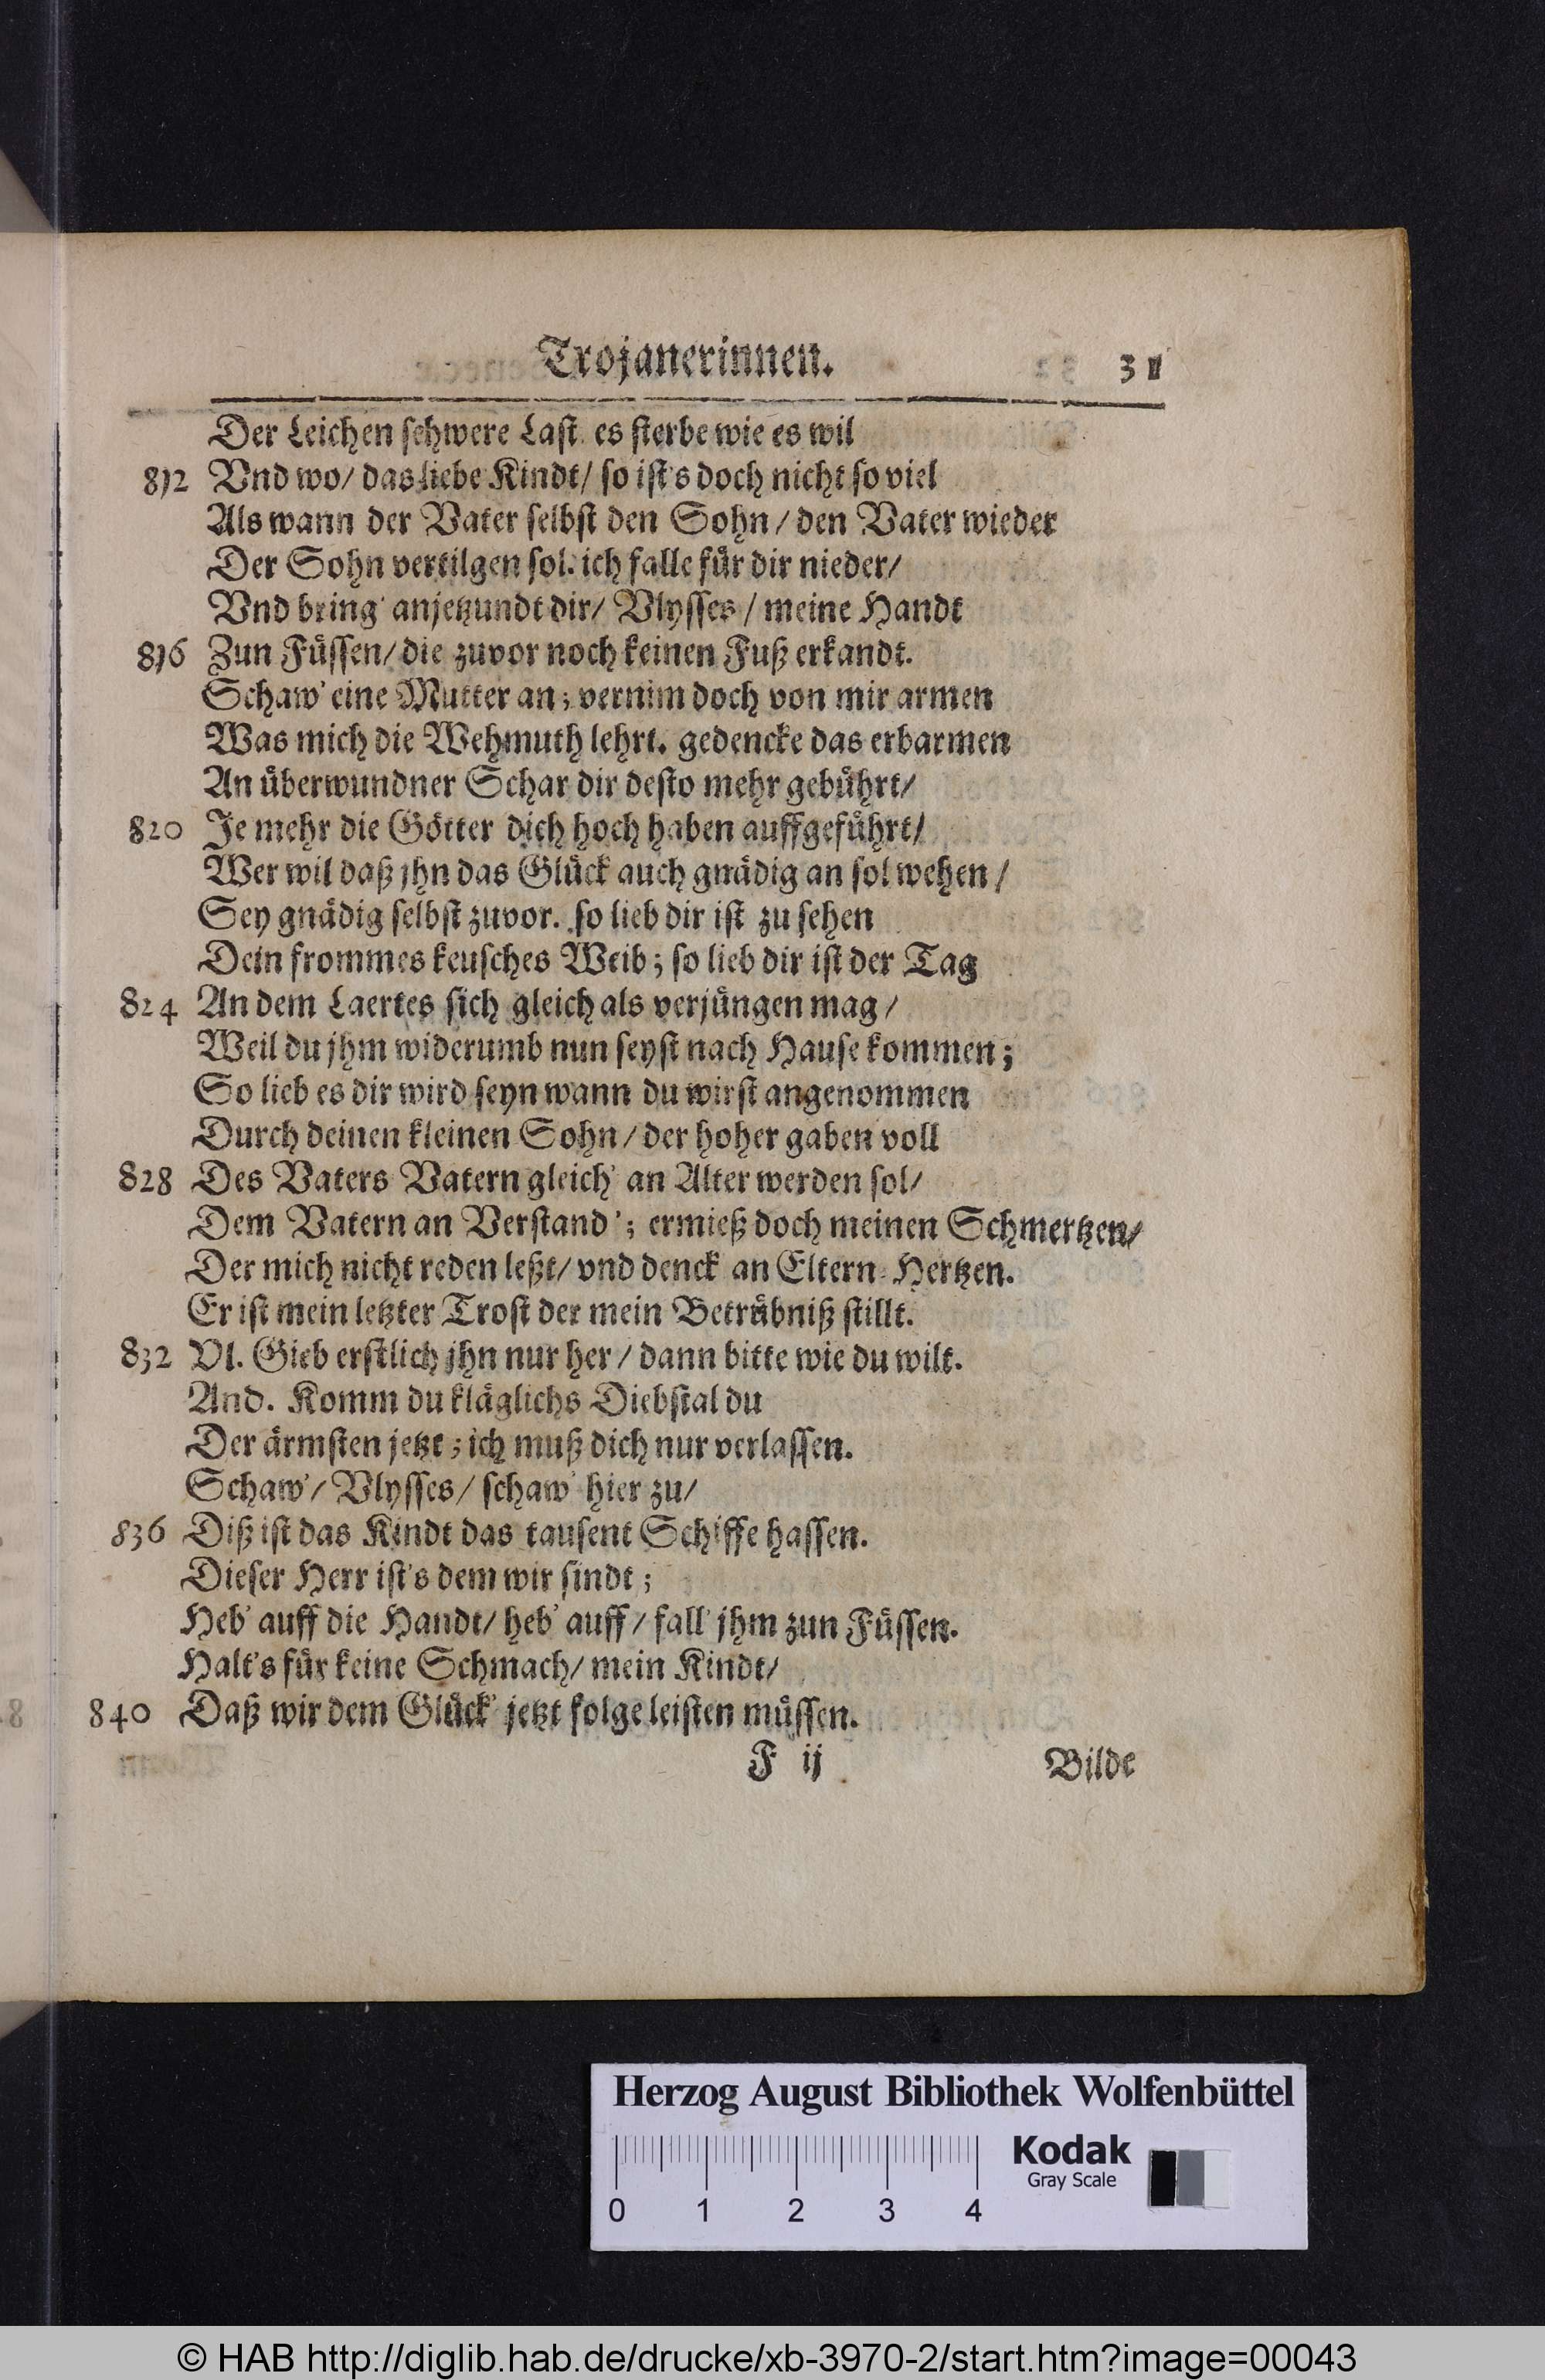 Trojanerinnen. 31
Der Leichen schwere Last. es sterbe wie es wil
812 Vnd wo/ das liebe Kindt/ so ist's doch nicht so viel
Als wann der Vater selbst den Sohn/ den Vater wieder
Der Sohn vertilgen sol. ich falle fuͤr dir nieder/
Vnd bring' anjetzundt dir/ Vlysses/ meine Handt
816 Zun Fuͤssen/ die zuvor noch keinen Fuß erkandt.
Schaw' eine Mutter an; vernim doch von mir armen
Was mich die Wehmuth lehrt. gedencke das erbarmen
An uͤberwundner Schar dir desto mehr gebuͤhrt/
820 Je mehr die Goͤtter dich hoch haben auffgefuͤhrt/
Wer wil daß jhn das Gluͤck auch gnaͤdig an sol wehen/
Sey gnaͤdig selbst zuvor. so lieb dir ist zu sehen
Dein frommes keusches Weib; so lieb dir ist der Tag
824 An dem Laertes sich gleich als verjuͤngen mag/
Weil du jhm widerumb nun seyst nach Hause kommen;
So lieb es dir wird seyn wann du wirst angenommen
Durch deinen kleinen Sohn/ der hoher gaben voll
828 Des Vaters Vatern gleich' an Alter werden sol/
Dem Vatern an Verstand'; ermieß doch meinen Schmertzen/
Der mich nicht reden leßt/ vnd denck an Eltern-Hertzen.
Er ist mein letzter Trost der mein Betruͤbniß stillt.
832 Vl. Gieb erstlich jhn nur her/ dann bitte wie du wilt.
And. Komm du klaͤglichs Diebstal du
Der aͤrmsten jetzt; ich muß dich nur verlassen.
Schaw'/ Vlysses/ schaw' hier zu/
836 Diß ist das Kindt das tausent Schiffe hassen.
Dieser Herr ist's dem wir sindt;
Heb' auff die Handt/ heb' auff/ fall' jhm zun Fuͤssen.
Halt's fuͤr keine Schmach/ mein Kindt/
840 Daß wir dem Gluͤck' jetzt folge leisten muͤssen.
F ij Bilde
Herzog August Bibliothek Wolfenbüttel
Kodak
Gray Scale
0 1 2 3 4
© HAB http://diglib.hab.de/drucke/xb-3970-2/start.htm?image=00043